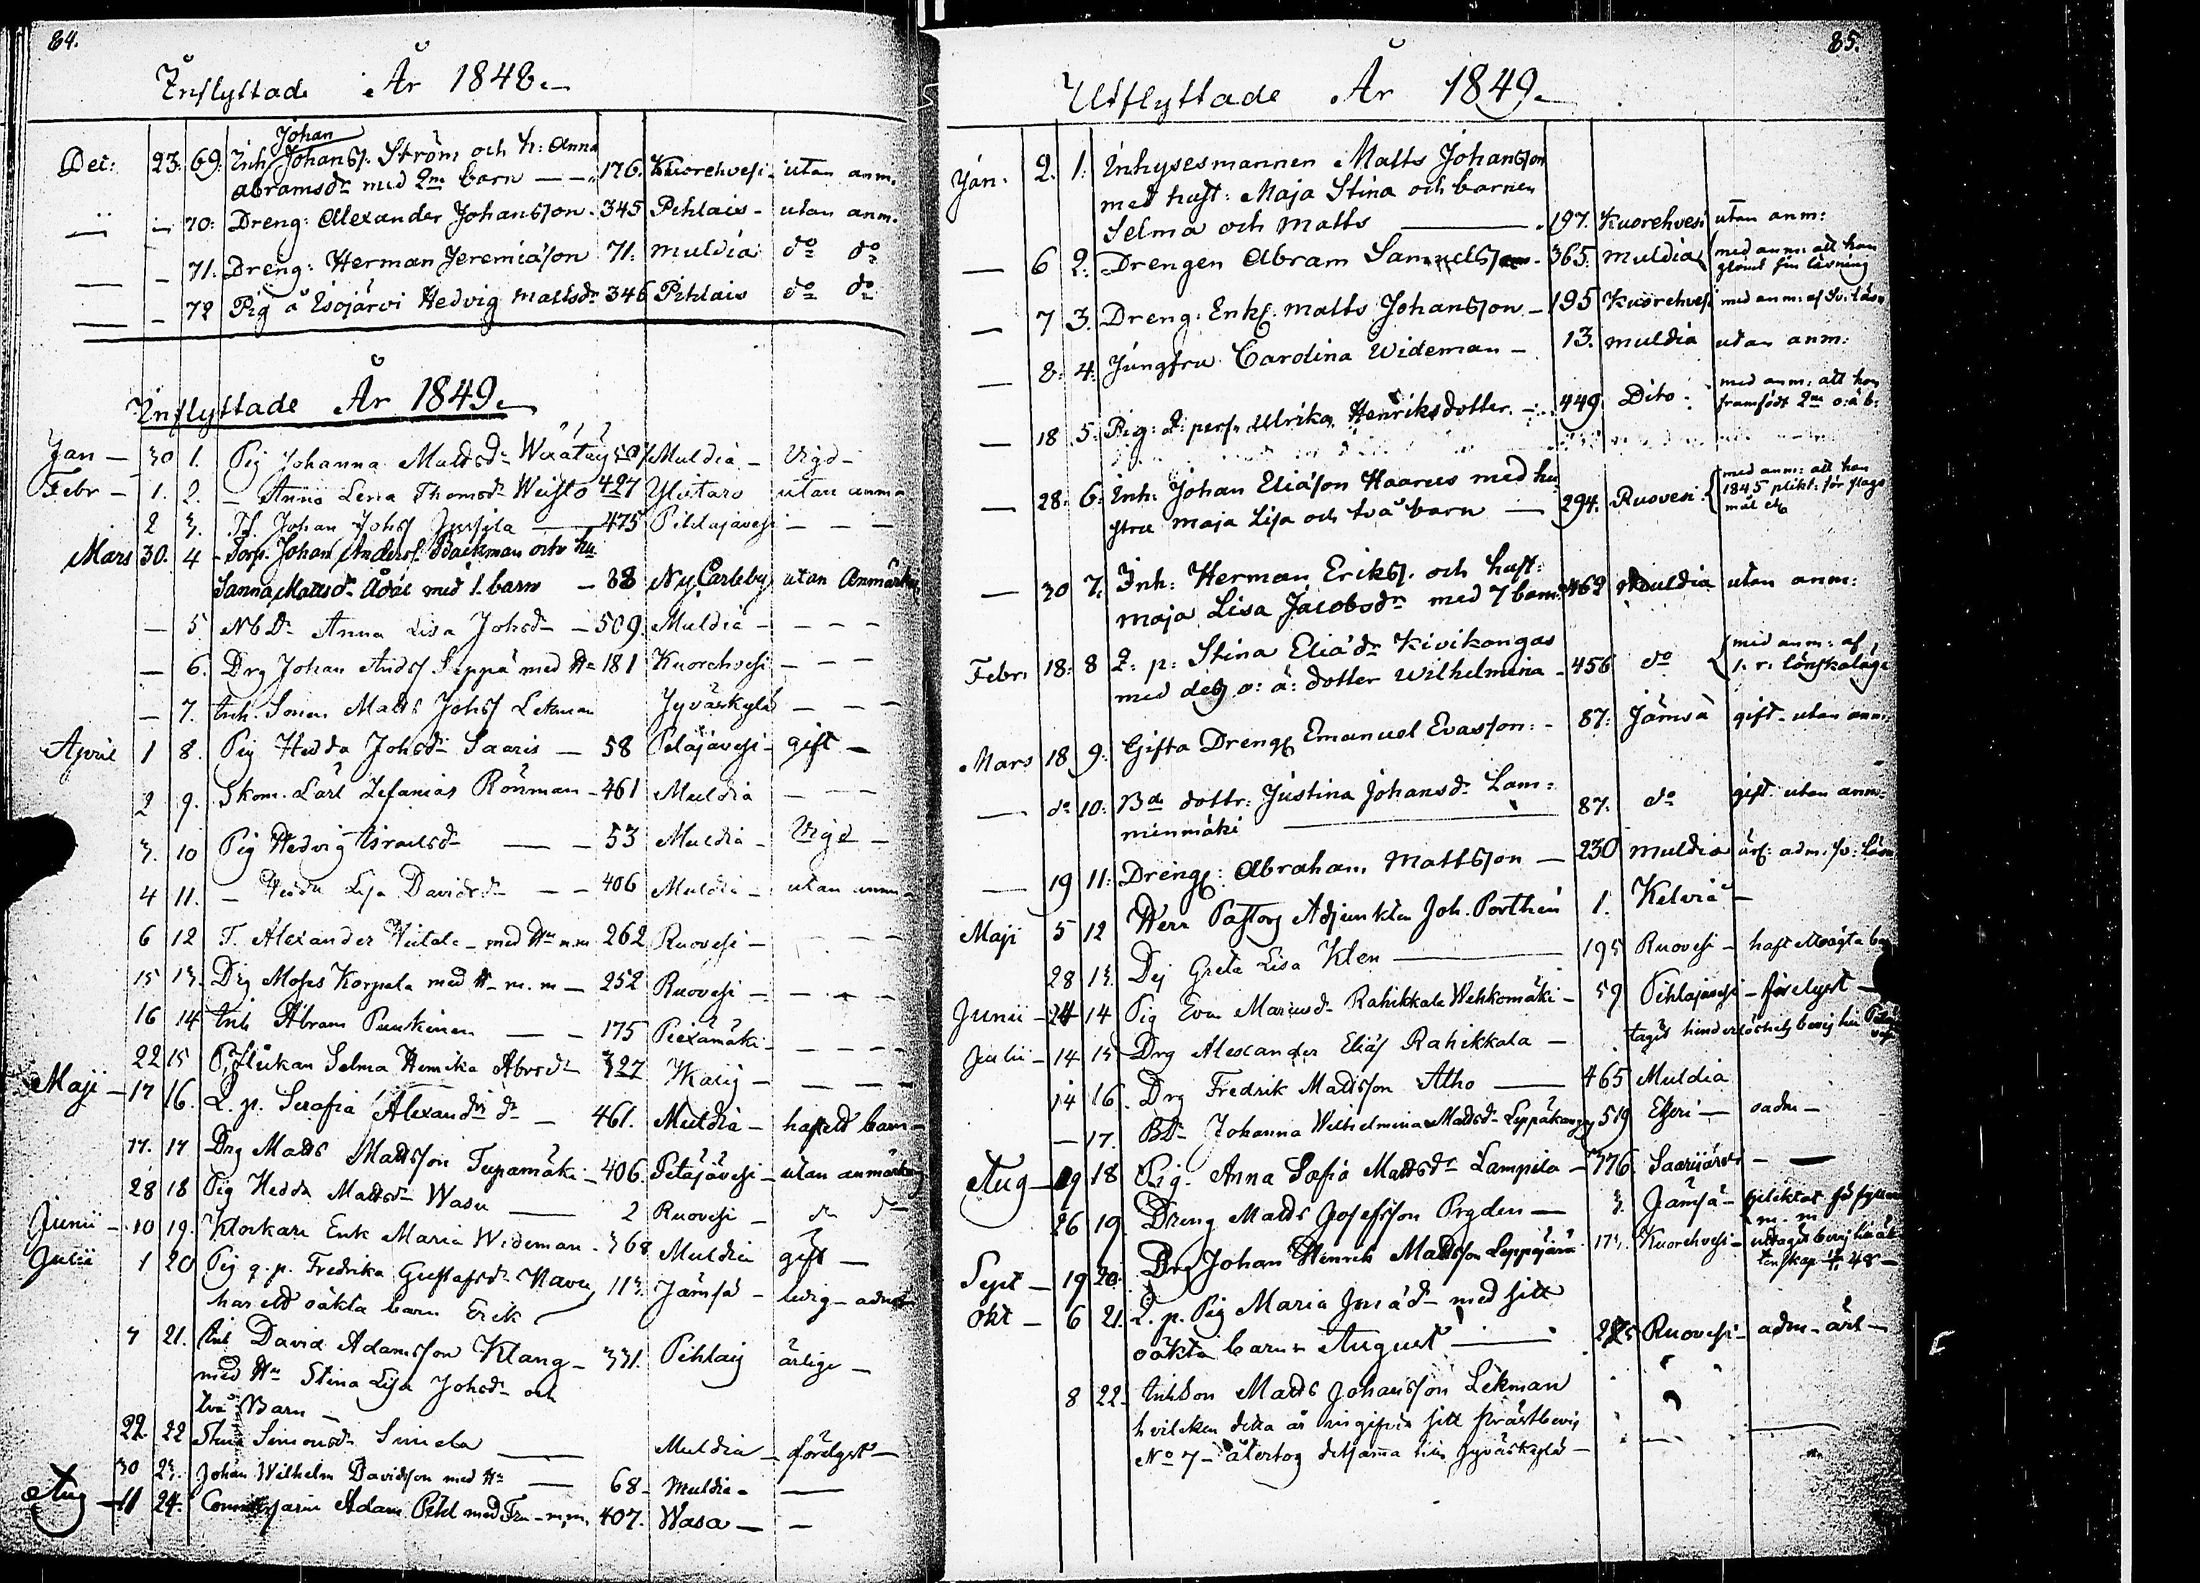 84.
Inflyttade År 1848.
Johan
Dec: 23. 69. Inh. Johanss. Ström och h: Anna
abramsdr med 2ne barn — 176. Kuorehvesi - utan anm.
— — 70: Dreng: Alexander Johansson - 345 Pihlais - utan anm.
— — 71. Dreng: Herman Jeremiäson 71. muldia do do
— — 72 Pig å Isojärvi Hedvig Mattsdr 346 Pihlais do do
Inflyttade År 1849.
Jan — 30 1. Pig Johanna Mattsdr Muldia - Vigd -
Febr — 1. 2. — Anna Lena Thomsdr 427 utan anm
2 3. Johan Johss — 475 Pihlajavesi — — —
Mars 30. 4 - Torp. Johan Anderss. Backman och hu
Sanna Mattsdr med 1. barn — 88 Ny Carleby utan Anmärkn
— 5. Anna Lisa Johsdr — 509. Muldia — — —
— 6. Drg Johan Andss Seppä med Hu 181 Kuorehvesi — — —
— 7. Inh. Sonen Matts Johss Lekman Jyväskylä — — —
April 1 8. Pig Hedda Johsdr Saaris — 58 Petäjävesi - gift —
2 9. Skom. Lärl Zefanias Rönman - 461 Muldia — — —
3. 10 Pig Hedvig Israelsdr — — 53 Muldia - Vigd —
4 11. — Hedda Lisa Davidsdr — — 406 Muldia - utan anm
6 12 T. Alexander Viitala - med Hu m.m 262 Ruovesi — — —
15 13. Drg Moses Korpela med H- m.m — 252 Ruovesi — — —
16 14 Inh Abram Puukinen — — 175 Piexämäki — — —
22 15 P. Flickan Selma Henrika Abrsdr 327 Ikalis — — —
Maji — 17 16. L. p. Serafia Alexandrs dr — 461. Muldia - haft ett barn —
17. 17 Drg Matts Mattsson Tupamäki — 406. Petäjävesi - utan anmärkn
28 18 Pig Hedda Mattsdr Wasu — 2 Ruovesi — do do
Junii — 10 19. Klockare Enk Maria Wideman - 368 Muldia gift —
Julii 1 20 Pig q. p. Fredrika Gustafsdr 113. Jämsä - ledig -
har ett oäkta barn Erik
7 21. Inh David Adamsson Klang — 331. Pihlaig ärlige —
med Hu Stina Lisa Johsdr och
två Barn —
22. 22 Simonsdr Simela — Muldia - förelyst —
30 23. Johan Wilhelm Davidsson med Hu — 68 - Muldia - —
Aug — 11 24. Adam Pihl med Fru - m.m. 407. Wasa — —
85.
Utflyttade År 1849.
Jan. 2. 1. Inhysesmannen Matts Johansson
med hust: Maja Stina och barnen
Selma och Matts — 197. Kuorehvesi utan anm:
— 6 2. Drengen Abram Samuelsson - 365. Muldia med anm: att han
glömt sin läsning
— 7 3. Dreng: Enkl. Matts Johansson — 195 Kuorehvesi med anm: af sv: läsn
— 8: 4: Jungfru Carolina Wideman — 13. muldia utan anm:
— 18 5: Pig: q: pers. Ulrika Henriksdotter — 449. Dito: med anm: att hon
framfödt 2ne o: ä b:
— 28: 6: Inh: Johan Eliäson Haarus med hu
stru maja Lisa och två barn — 294. Ruovesi med anm: att han
1845 plikt: för slags
mål etc
— 30 7. Inh: Herman Erikss. och hust:
maja Lisa Jacobsdr med 7 barn 462 Muldia utan anm:
Febr: 18: 8 Q: p: Stina Eliädr Kivikangas
med des o: ä: dotter Wilhelmina - 456 do med anm: af
1. r: lönskaläge
Mars 18 9. Gifta Drengs Emanuel Evasson: - 87: Jämsä gift - utan anm:
— do 10: Bde dottr: Justina Johansdr Lam=
minmäki — 87: do gift utan anm-
— 19 11: Drengs: Abraham Mattsson — 230 muldia ärl: adm. sv: läsn
Maji 5 12 Herr Pastors Adjunkten Joh. Porthén 1. Kelviå —
28 13. Dej Greta Lisa Klen — 195 Ruovesi — haft oäkta ba
Junii — 24 14 Pig Eva Mariusdr Rahikkala Wehkomäki — 59 Pihlajavesi - förelyst —
Julii — 14 15 Drg Alexander Eliäs Rahikkala — tagit hinderlöshets bevis
14 16. Drg Fredrik Mattsson Alho — 465 Muldia
— 17. BDr Johanna Wilhelmina Mattsdr Leppäkangas 519 Etseri — oadm —
Aug — 19 18 Pig. Anna Sofia Mattsdr Lampila — 376. Saarijärvi — —
26 19. Dreng Matts Josefsson Prgden — 3. Jämsä — pliktat för fylleri
m. m.
Sept — 19 20 Drg Johan Henrik Mattsson Leppäjärvi 173. Kuorehvesi — uttagit bevis till äk
tenskap 48 —
Okt — 6 21. L. p. Pig Maria dr med sitt
oäkta barn August — 285 Ruovesi — adm. ärl —
8 22. Inh Son Matts Johansson Lekman
hvilken detta år ingifvit sitt prästbevis
No 7 — återtog detsamma till Jyväskylä —